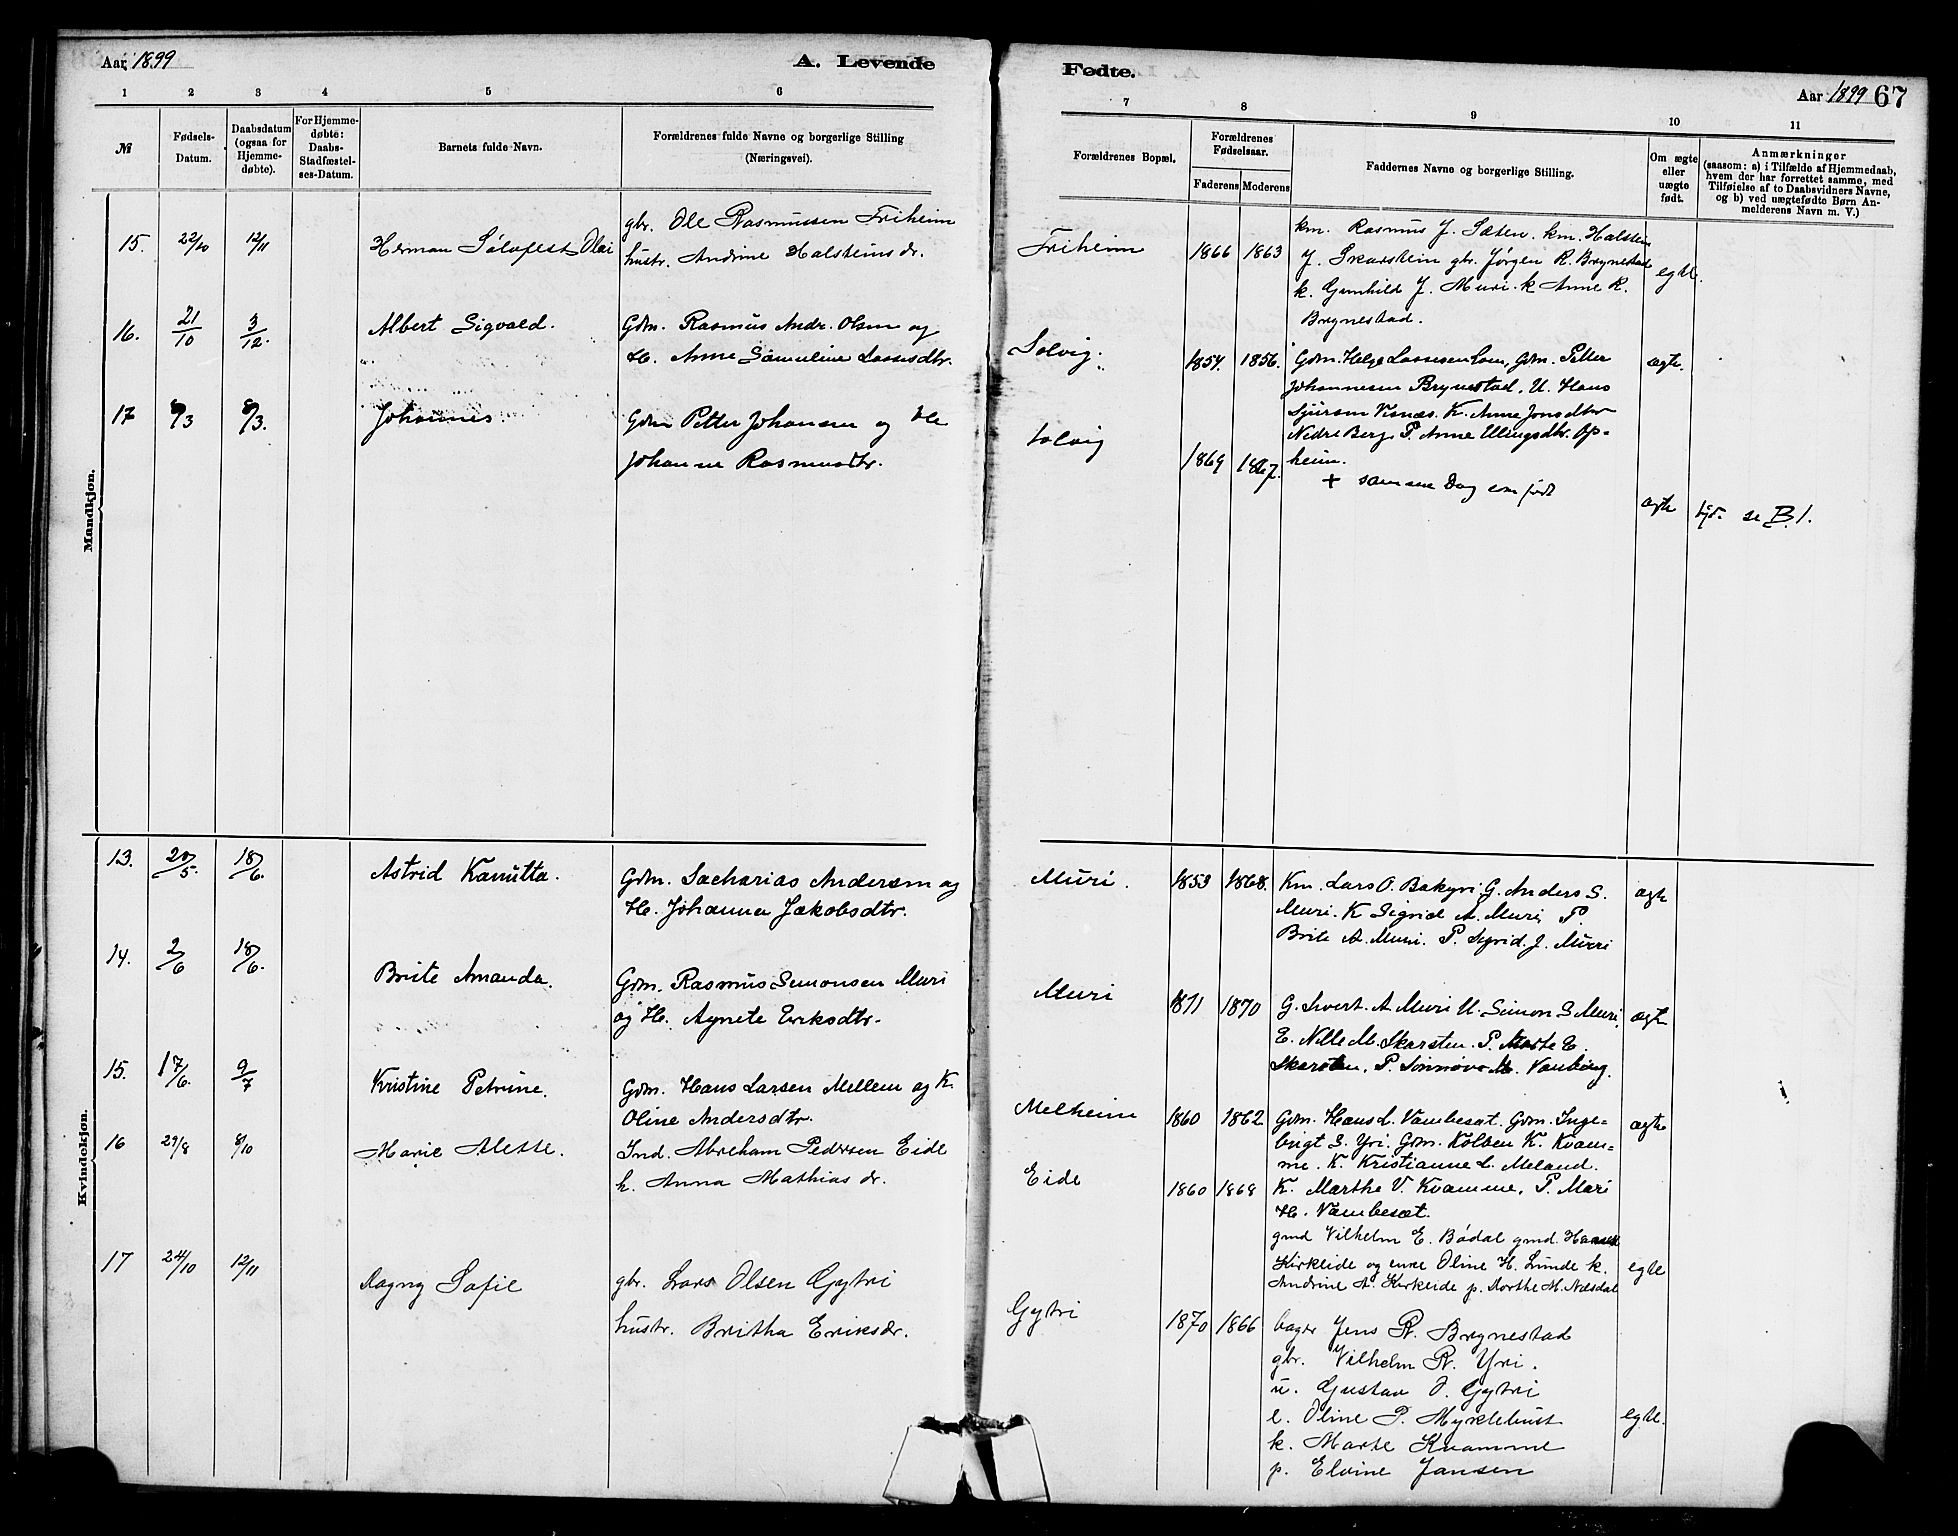 Aar 1899
A. Levende
Fødte.
Aar 1899 67
1 2 3 4 5 6
7 8 9 10 11
№
Fødsels-
Datum.
Daabsdatum
(ogsaa for
Hjemme-
døbte).
For Hjemme-
døbte:
Daabs-
Stadfæstel-
ses-Datum.
Barnets fulde Navn.
Forældrenes fulde Navne og borgerlige Stilling
(Næringsvei).
Forældrenes Bopæl.
Forældrenes
Fødselsaar.
Faderens Moderens
Faddernes Navne og borgerlige Stilling.
Om ægte
eller
uægte
født.
Anmærkninger
(saasom: a) i Tilfælde af Hjemmedaab,
hvem der har forrettet samme, med
Tilføielse af to Daabsvidners Navne,
og b) ved uægtefødte Børn An-
melderens Navn m. V.)
Mandkjøn.
15. 22/10 12/11 Herman Sølvfest Olai
gbr. Ole Rasmussen Friheim
hustr. Andrine Halsteins dr.
Friheim 1866 1863
km. Rasmus J. Sæten. km. Halstein
J. Skarstein gbr. Jørgen R. Brynestad
k. Gunhild J. Muri. k Anne R.
Brynestad.
egte.
16. 21/10 3/12. Albert Sigvald.
Gdm. Rasmus Andr. Olsen og
H. Anne Samueline Lassesdtr.
Solvig. 1854. 1856.
Gdm. Helge Lassesen Loen, Gdm. Petter
Johannesen Brynestad, U. Hans
Sjursen Visnæs. K. Anne Jonsdtr
Nedre Berg. P. Anne Ellingsdtr. Op-
heim.
ægte.
17 8/3 8/3. Johannes.
Gdm Petter Johansen og He
Johanne Rasmusdtr.
Solvig 1869 1867.
+ samme Dag som født
ægte
se B 1.
Kvindekjøn.
13. 20/5. 18/6 Astrid Kanutta.
Gdm. Sacharias Andersen og
H. Johanna Jakobsdtr.
Muri. 1853 1868.
Km. Lars O. Bakyri G. Anders S.
Muri. K Sigrid A. Muri, P.
Brite A. Muri. P. Sigrid J. Muri
ægte
14. 2/6 18/6. Brite Amanda.
Gdm. Rasmus Simonsen Muri
og H. Agnete Eriksdtr.
Muri 1871 1870
G. Sivert. A Muri U. Simon S Muri,
E. Nille M. Skarsten. P. Marte E.
Skarsten, P. Sønnøve M. Vanberg.
ægte
15. 17/6. 9/7 Kristine Petrine.
Gdm. Hans Larsen Mellem og K.
Oline Andersdtr.
Melheim 1860 1862
Gdm. Hans L. Vambesæt. Gdm. Inge-
brigt S. Yri. Gdm. Kolben K. Kvam-
me. K. Kristianne L. Meland.
K. Marthe V. Kvamme. P. Mari
H. Vambesæt.
ægte
16 29/8 8/10 Marie Alette.
Ind. Abraham Pedersen Eide
h. Anna Mathias dr.
Eide 1860 1868
gmd Vilhelm E. Bødal gmd. Hans
Kirkeide og enke Oline H. Lunde k.
Andrine A. Kirkeide p. Dorthe M. Nesdal
egte
17 24/10 12/11 Dagny Sofie
gbr. Lars Olsen Gytri
hustr. Britha Eriksdr.
Gytri 1870 1866
bager Jens R. Brynestad
gbr. Vilhelm R. Yri.
u. Gustav O. Gytri
e. Oline P. Myklebust
k. Marte Kvamme
p. Elvine Jansen
egte.